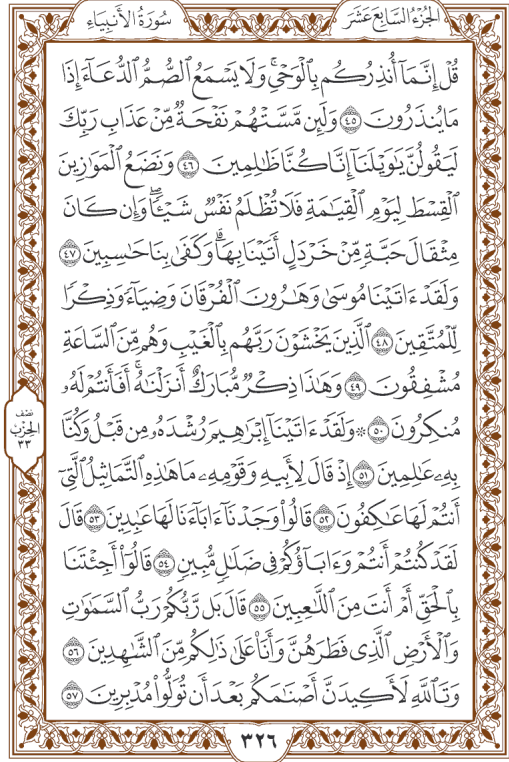 الجُزْءُ السَّابِعَ عَشَرَ
سُورَةُ الأَنْبِيَاءِ
قُلْ إِنَّمَآ أُنذِرُكُم بِٱلْوَحْيِۚ وَلَا يَسْمَعُ ٱلصُّمُّ ٱلدُّعَآءَ إِذَا
مَا يُنذَرُونَ ٤٥ وَلَئِن مَّسَّتْهُمْ نَفْحَةٌ مِّنْ عَذَابِ رَبِّكَ
لَيَقُولُنَّ يَٰوَيْلَنَآ إِنَّا كُنَّا ظَٰلِمِينَ ٤٦ وَنَضَعُ ٱلْمَوَٰزِينَ
ٱلْقِسْطَ لِيَوْمِ ٱلْقِيَٰمَةِ فَلَا تُظْلَمُ نَفْسٌ شَيْـًٔاۖ وَإِن كَانَ
مِثْقَالَ حَبَّةٍ مِّنْ خَرْدَلٍ أَتَيْنَا بِهَاۗ وَكَفَىٰ بِنَا حَٰسِبِينَ ٤٧
وَلَقَدْ ءَاتَيْنَا مُوسَىٰ وَهَٰرُونَ ٱلْفُرْقَانَ وَضِيَآءً وَذِكْرًا
لِّلْمُتَّقِينَ ٤٨ ٱلَّذِينَ يَخْشَوْنَ رَبَّهُم بِٱلْغَيْبِ وَهُم مِّنَ ٱلسَّاعَةِ
مُشْفِقُونَ ٤٩ وَهَٰذَا ذِكْرٌ مُّبَارَكٌ أَنزَلْنَٰهُۚ أَفَأَنتُمْ لَهُۥ
مُنكِرُونَ ٥٠ ۞ وَلَقَدْ ءَاتَيْنَآ إِبْرَٰهِيمَ رُشْدَهُۥ مِن قَبْلُ وَكُنَّا
بِهِۦ عَٰلِمِينَ ٥١ إِذْ قَالَ لِأَبِيهِ وَقَوْمِهِۦ مَا هَٰذِهِ ٱلتَّمَاثِيلُ ٱلَّتِىٓ
أَنتُمْ لَهَا عَٰكِفُونَ ٥٢ قَالُوا۟ وَجَدْنَآ ءَابَآءَنَا لَهَا عَٰبِدِينَ ٥٣ قَالَ
لَقَدْ كُنتُمْ أَنتُمْ وَءَابَآؤُكُمْ فِى ضَلَٰلٍ مُّبِينٍ ٥٤ قَالُوٓا۟ أَجِئْتَنَا
بِٱلْحَقِّ أَمْ أَنتَ مِنَ ٱللَّٰعِبِينَ ٥٥ قَالَ بَل رَّبُّكُمْ رَبُّ ٱلسَّمَٰوَٰتِ
وَٱلْأَرْضِ ٱلَّذِى فَطَرَهُنَّ وَأَنَا۠ عَلَىٰ ذَٰلِكُم مِّنَ ٱلشَّٰهِدِينَ ٥٦
وَتَٱللَّهِ لَأَكِيدَنَّ أَصْنَٰمَكُم بَعْدَ أَن تُوَلُّوا۟ مُدْبِرِينَ ٥٧
نصف
الحزب
٣٣
٣٢٦